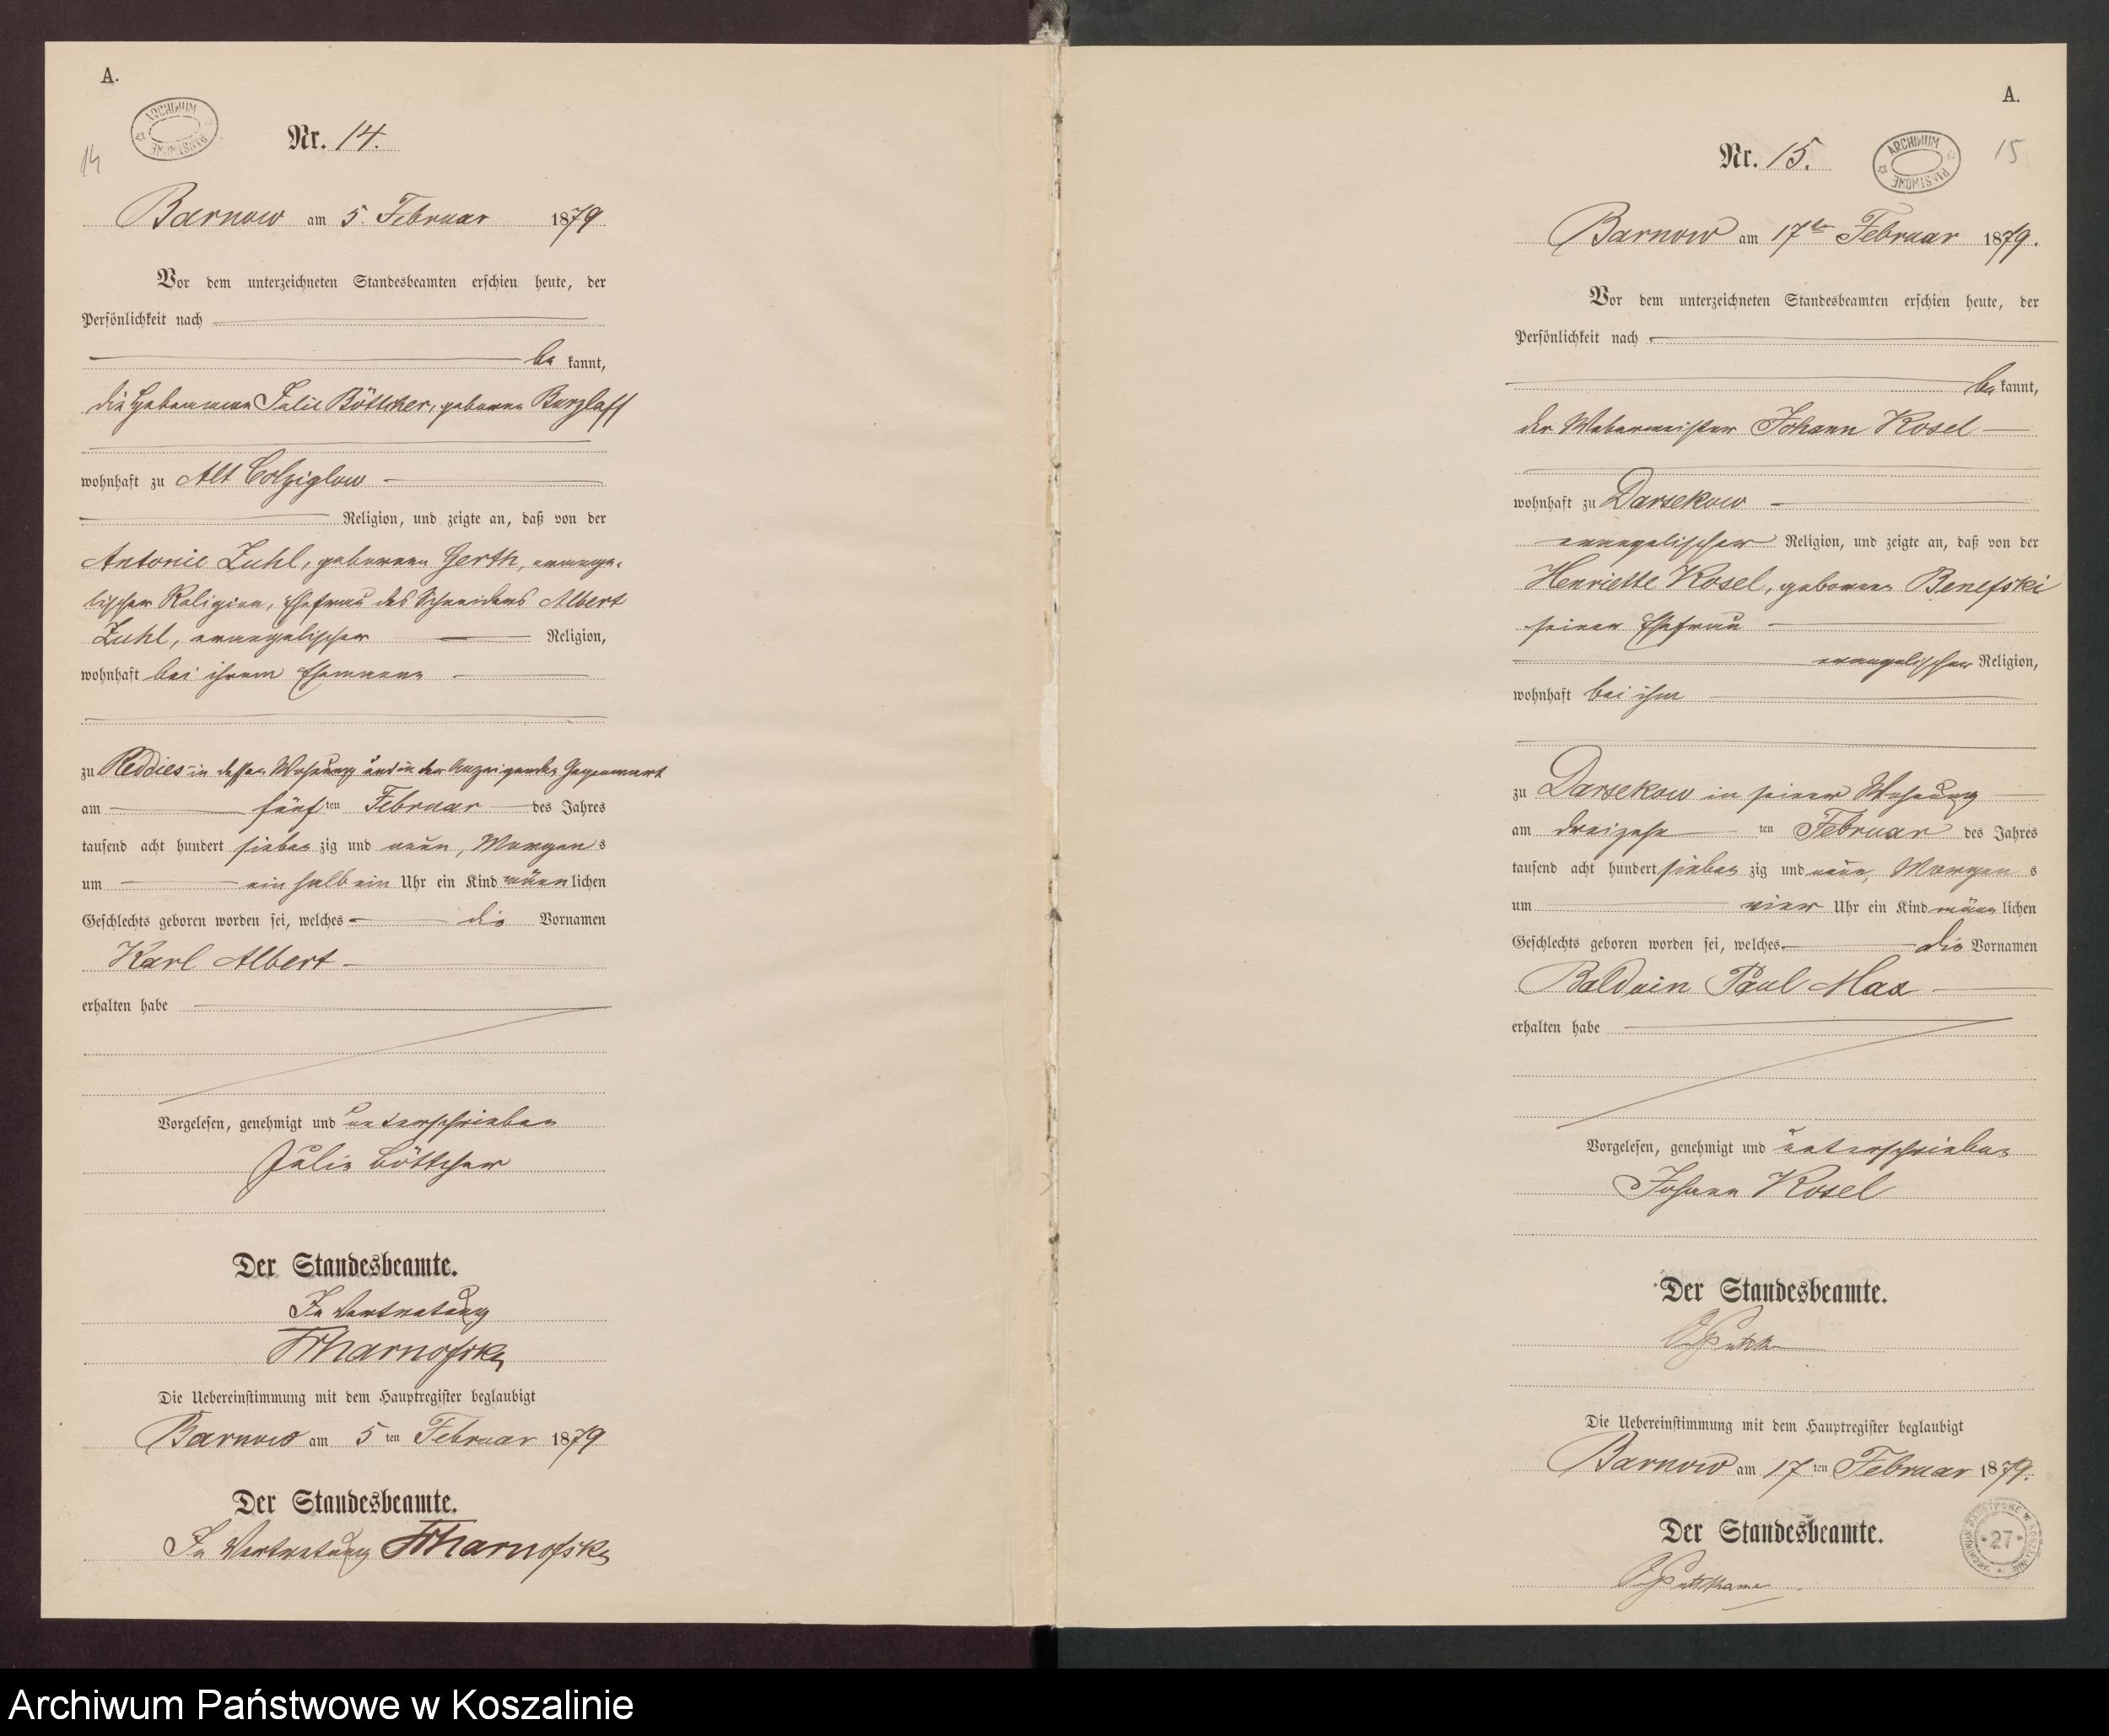 A.
ARCHIWUM PAŃSTWOWE
14
Nr. 14.
Barnow am 5. Februar 1879
Vor dem unterzeichneten Standesbeamten erschien heute, der
Persönlichkeit nach
be kannt,
die Hebamme Julie Böttcher, geborene Burzlaff
wohnhaft zu Alt Colziglow
Religion, und zeigte an, daß von der
Antonie Zuhl, geborenen Gerth, evange-
lischer Religion, Ehefrau des Schneiders Albert
Zuhl, evangelischer Religion,
wohnhaft bei ihrem Ehemann
zu Reddies in dessen Wohnung und in der Anzeigenden Gegenwart
am fünf ten Februar des Jahres
tausend acht hundert sieben zig und neun, Morgen s
um ein halb ein Uhr ein Kind männ lichen
Geschlechts geboren worden sei, welches die Vornamen
Karl Albert
erhalten habe
Vorgelesen, genehmigt und unterschrieben
Julie Böttcher
Der Standesbeamte.
In Vertretung
Die Uebereinstimmung mit dem Hauptregister beglaubigt
Barnow am 5 ten Februar 1879
Der Standesbeamte.
In Vertretung
A.
Nr. 15.
ARCHIWUM PAŃSTWOWE
15
Barnow am 17ten Februar 1879.
Vor dem unterzeichneten Standesbeamten erschien heute, der
Persönlichkeit nach
be kannt,
der Webermeister Johann Kosel
wohnhaft zu Darsekow
evangelischer Religion, und zeigte an, daß von der
Henriette Kosel, geborenen Benefski
seiner Ehefrau
evangelischer Religion,
wohnhaft bei ihm
zu Darsekow in seiner Wohnung
am dreizehn ten Februar des Jahres
tausend acht hundert sieben zig und neun, Morgen s
um vier Uhr ein Kind männ lichen
Geschlechts geboren worden sei, welches die Vornamen
Balduin Paul Max
erhalten habe
Vorgelesen, genehmigt und unterschrieben
Johann Kosel
Der Standesbeamte.
Die Uebereinstimmung mit dem Hauptregister beglaubigt
Barnow am 17 ten Februar 1879.
Der Standesbeamte.
ARCHIWUM PAŃSTWOWE W KOSZALINIE
27
Archiwum Państwowe w Koszalinie